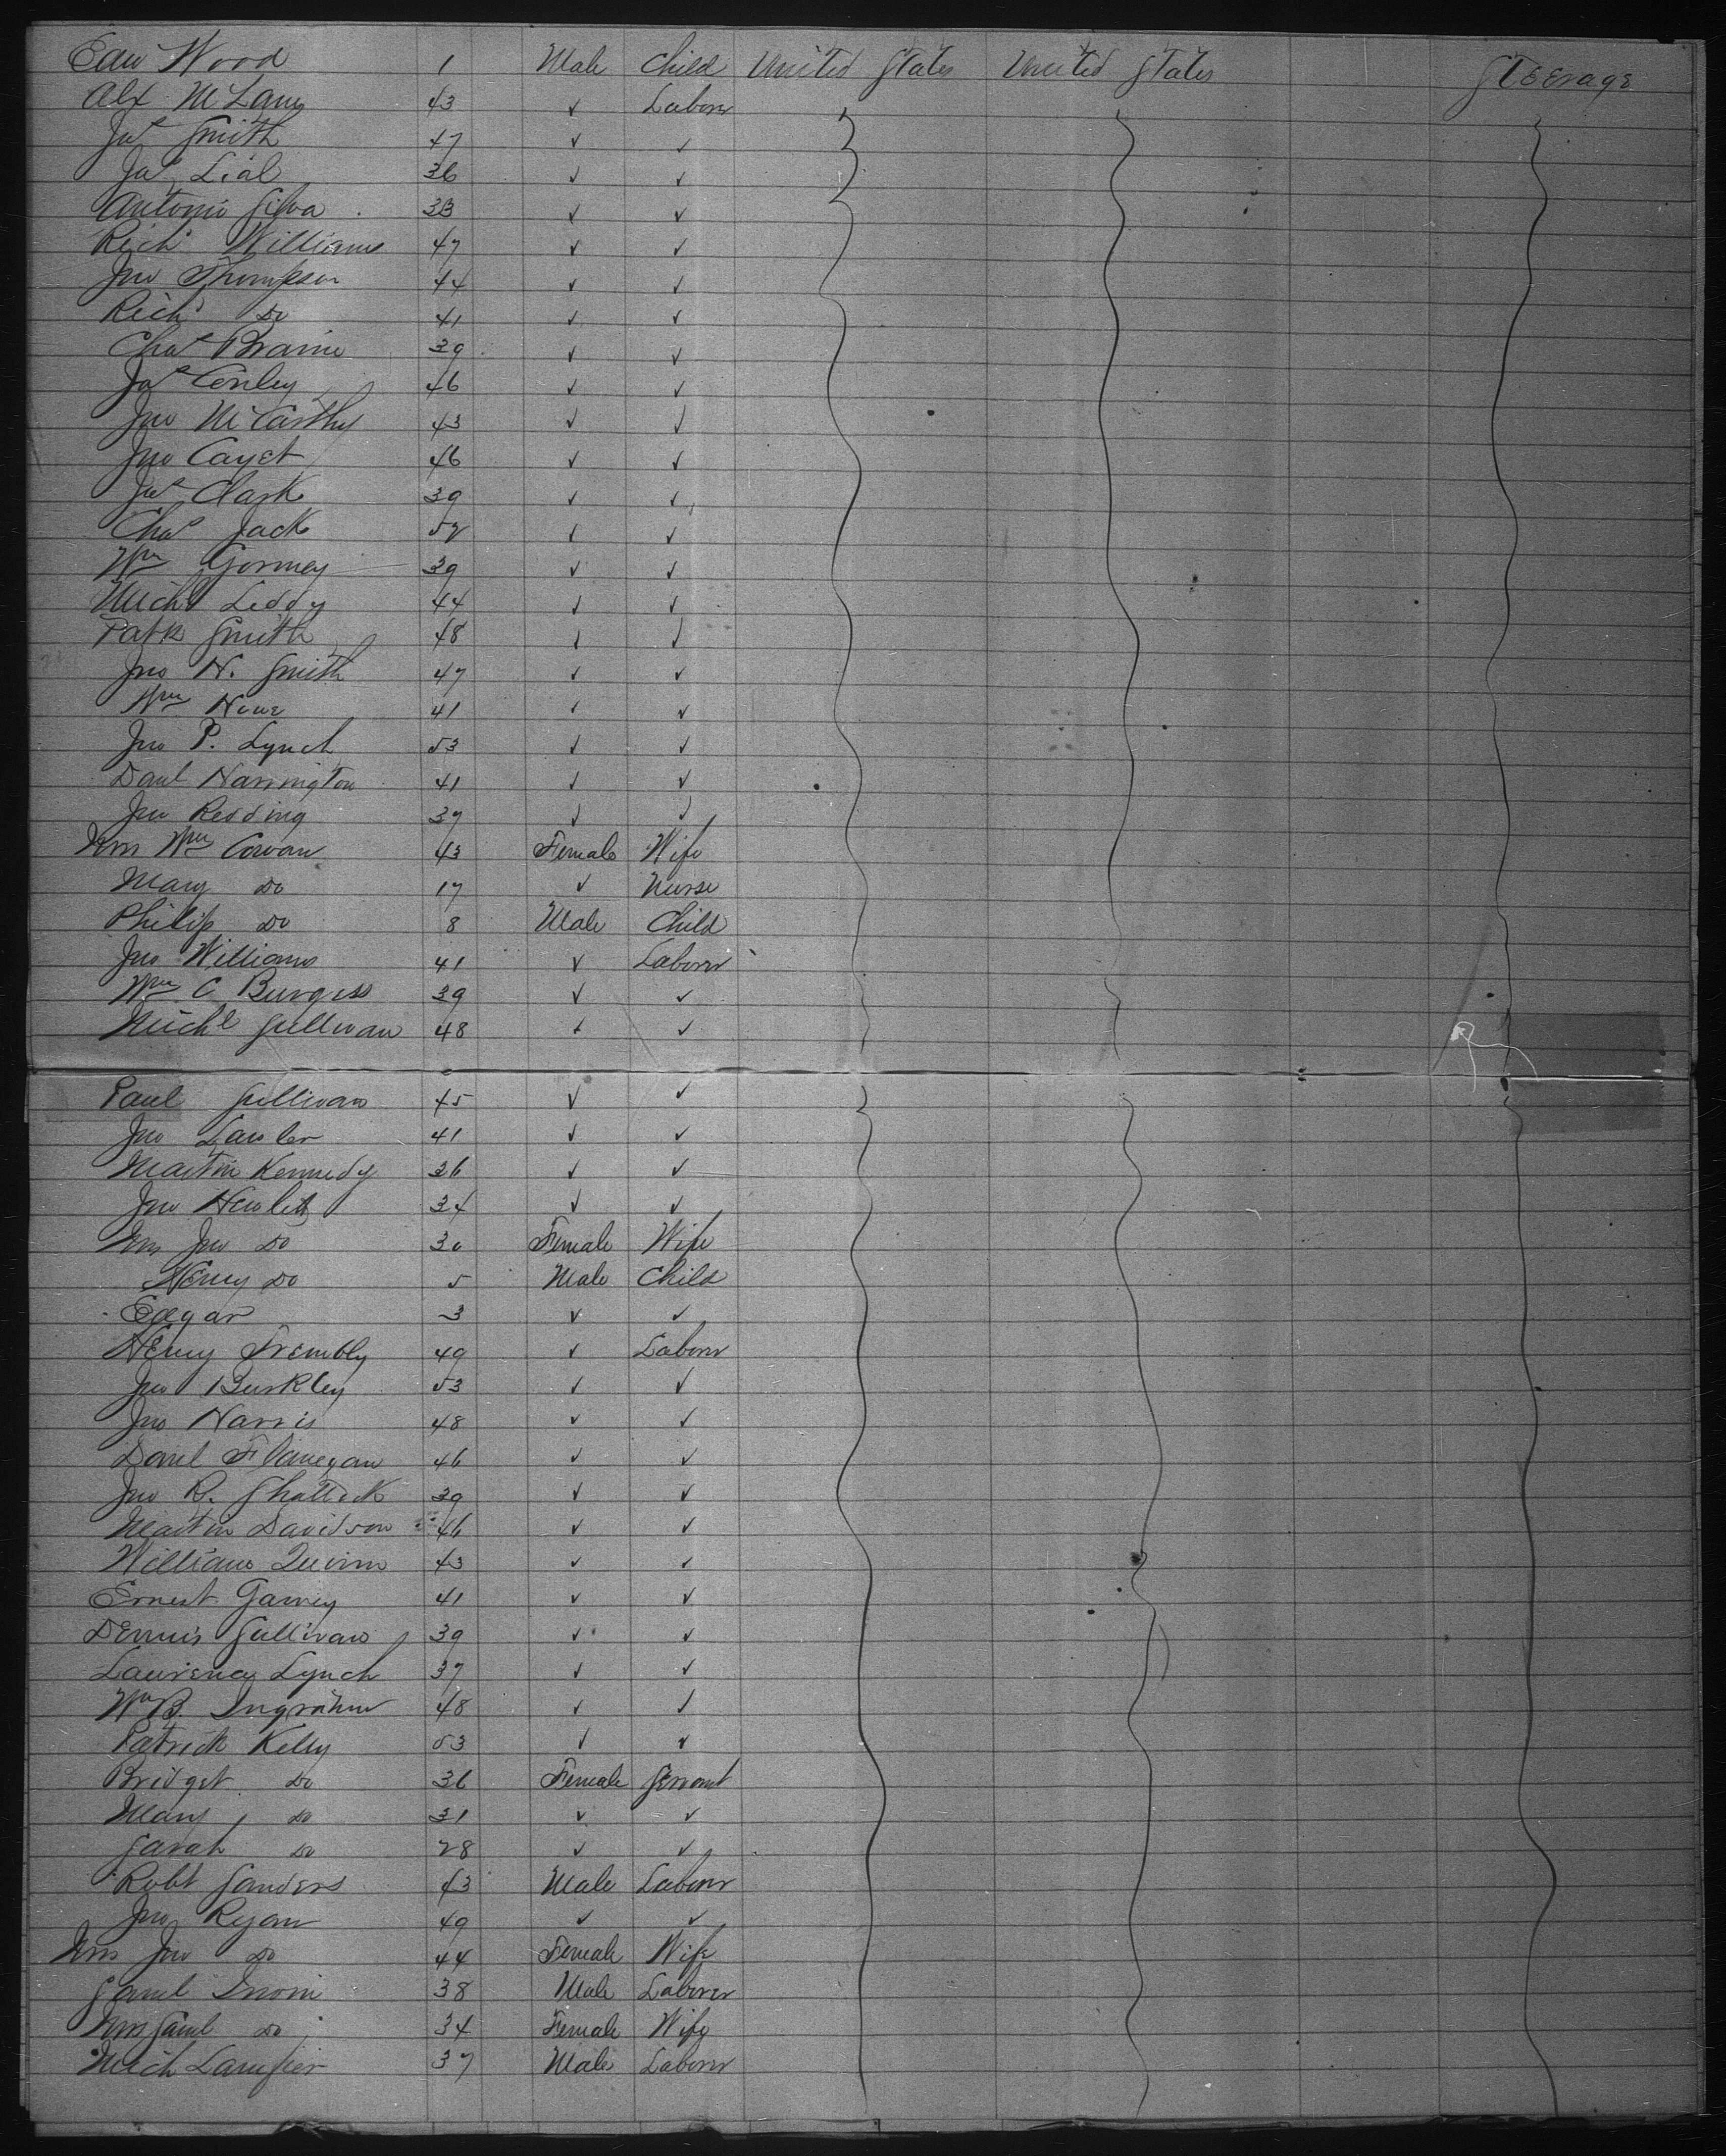 Edw Wood 1 Male Child United States United States Steerage
Alx McLane 43 ✓ Laborer
Jas Smith 47 ✓ ✓
Jas Lial 36 ✓ ✓
Antonio Silva 33 ✓ ✓
Richd Williams 47 ✓ ✓
Jno Thompson 44 ✓ ✓
Richd Do 41 ✓ ✓
Chas 39 ✓ ✓
Jas Conley 46 ✓ ✓
Jno McCarthy 43 ✓ ✓
Jno Cayet 46 ✓ ✓
Jas Clark 39 ✓ ✓
Chas Jack 52 ✓ ✓
Wm Gormey 39 ✓ ✓
Michl Leddy 44 ✓ ✓
Patk Smith 48 ✓ ✓
Jno H. Smith 47 ✓ ✓
Wm 41 ✓ ✓
Jno P. Lynch 53 ✓ ✓
Danl Harrington 41 ✓ ✓
Jno Redding 37 ✓ ✓
Mrs Wm Cowan 43 Female Wife
Mary Do 17 ✓ Nurse
Philip Do 8 Male Child
Jno Williams 41 ✓ Laborer
Wm C Burgess 39 ✓ ✓
Michl Sullivan 48 ✓ ✓
Paul Sullivan 45 ✓ ✓
Jno Lawler 41 ✓ ✓
Martin Kennedy 36 ✓ ✓
Jno 34 ✓ ✓
Mrs Jno Do 30 Female Wife
Henry Do 5 Male Child
Edgar 3 ✓ ✓
Henry Trembly 49 ✓ Laborer
Jno Burkley 53 ✓ ✓
Jno Harris 48 ✓ ✓
Danl Flanegan 46 ✓ ✓
Jno R. Shattuck 39 ✓ ✓
Martin Davidson 46 ✓ ✓
William Quinn 43 ✓ ✓
Ernest 41 ✓ ✓
Dennis Sullivan 39 ✓ ✓
Laurence Lynch 37 ✓ ✓
Wm B. Ingraham 48 ✓ ✓
Patrick Kelly 53 ✓ ✓
Bridget Do 36 Female Servant
Mary Do 31 ✓ ✓
Sarah Do 28 ✓ ✓
Robt Sanders 43 Male Laborer
Jno Ryan 49 ✓ ✓
Mrs Jno Do 44 Female Wife
Saml 38 Male Laborer
Mrs Saml Do 34 Female Wife
Mich Lampier 37 Male Laborer